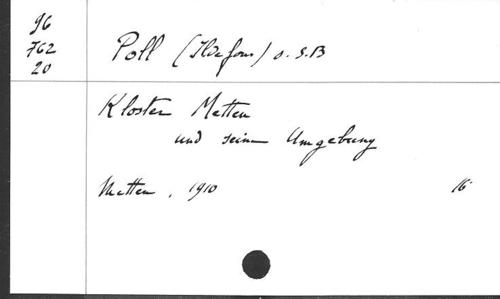 96
762
20
Poll (Ildefons) o.S.B
Kloster Metten
und seine Umgebung
Metten, 1910 16